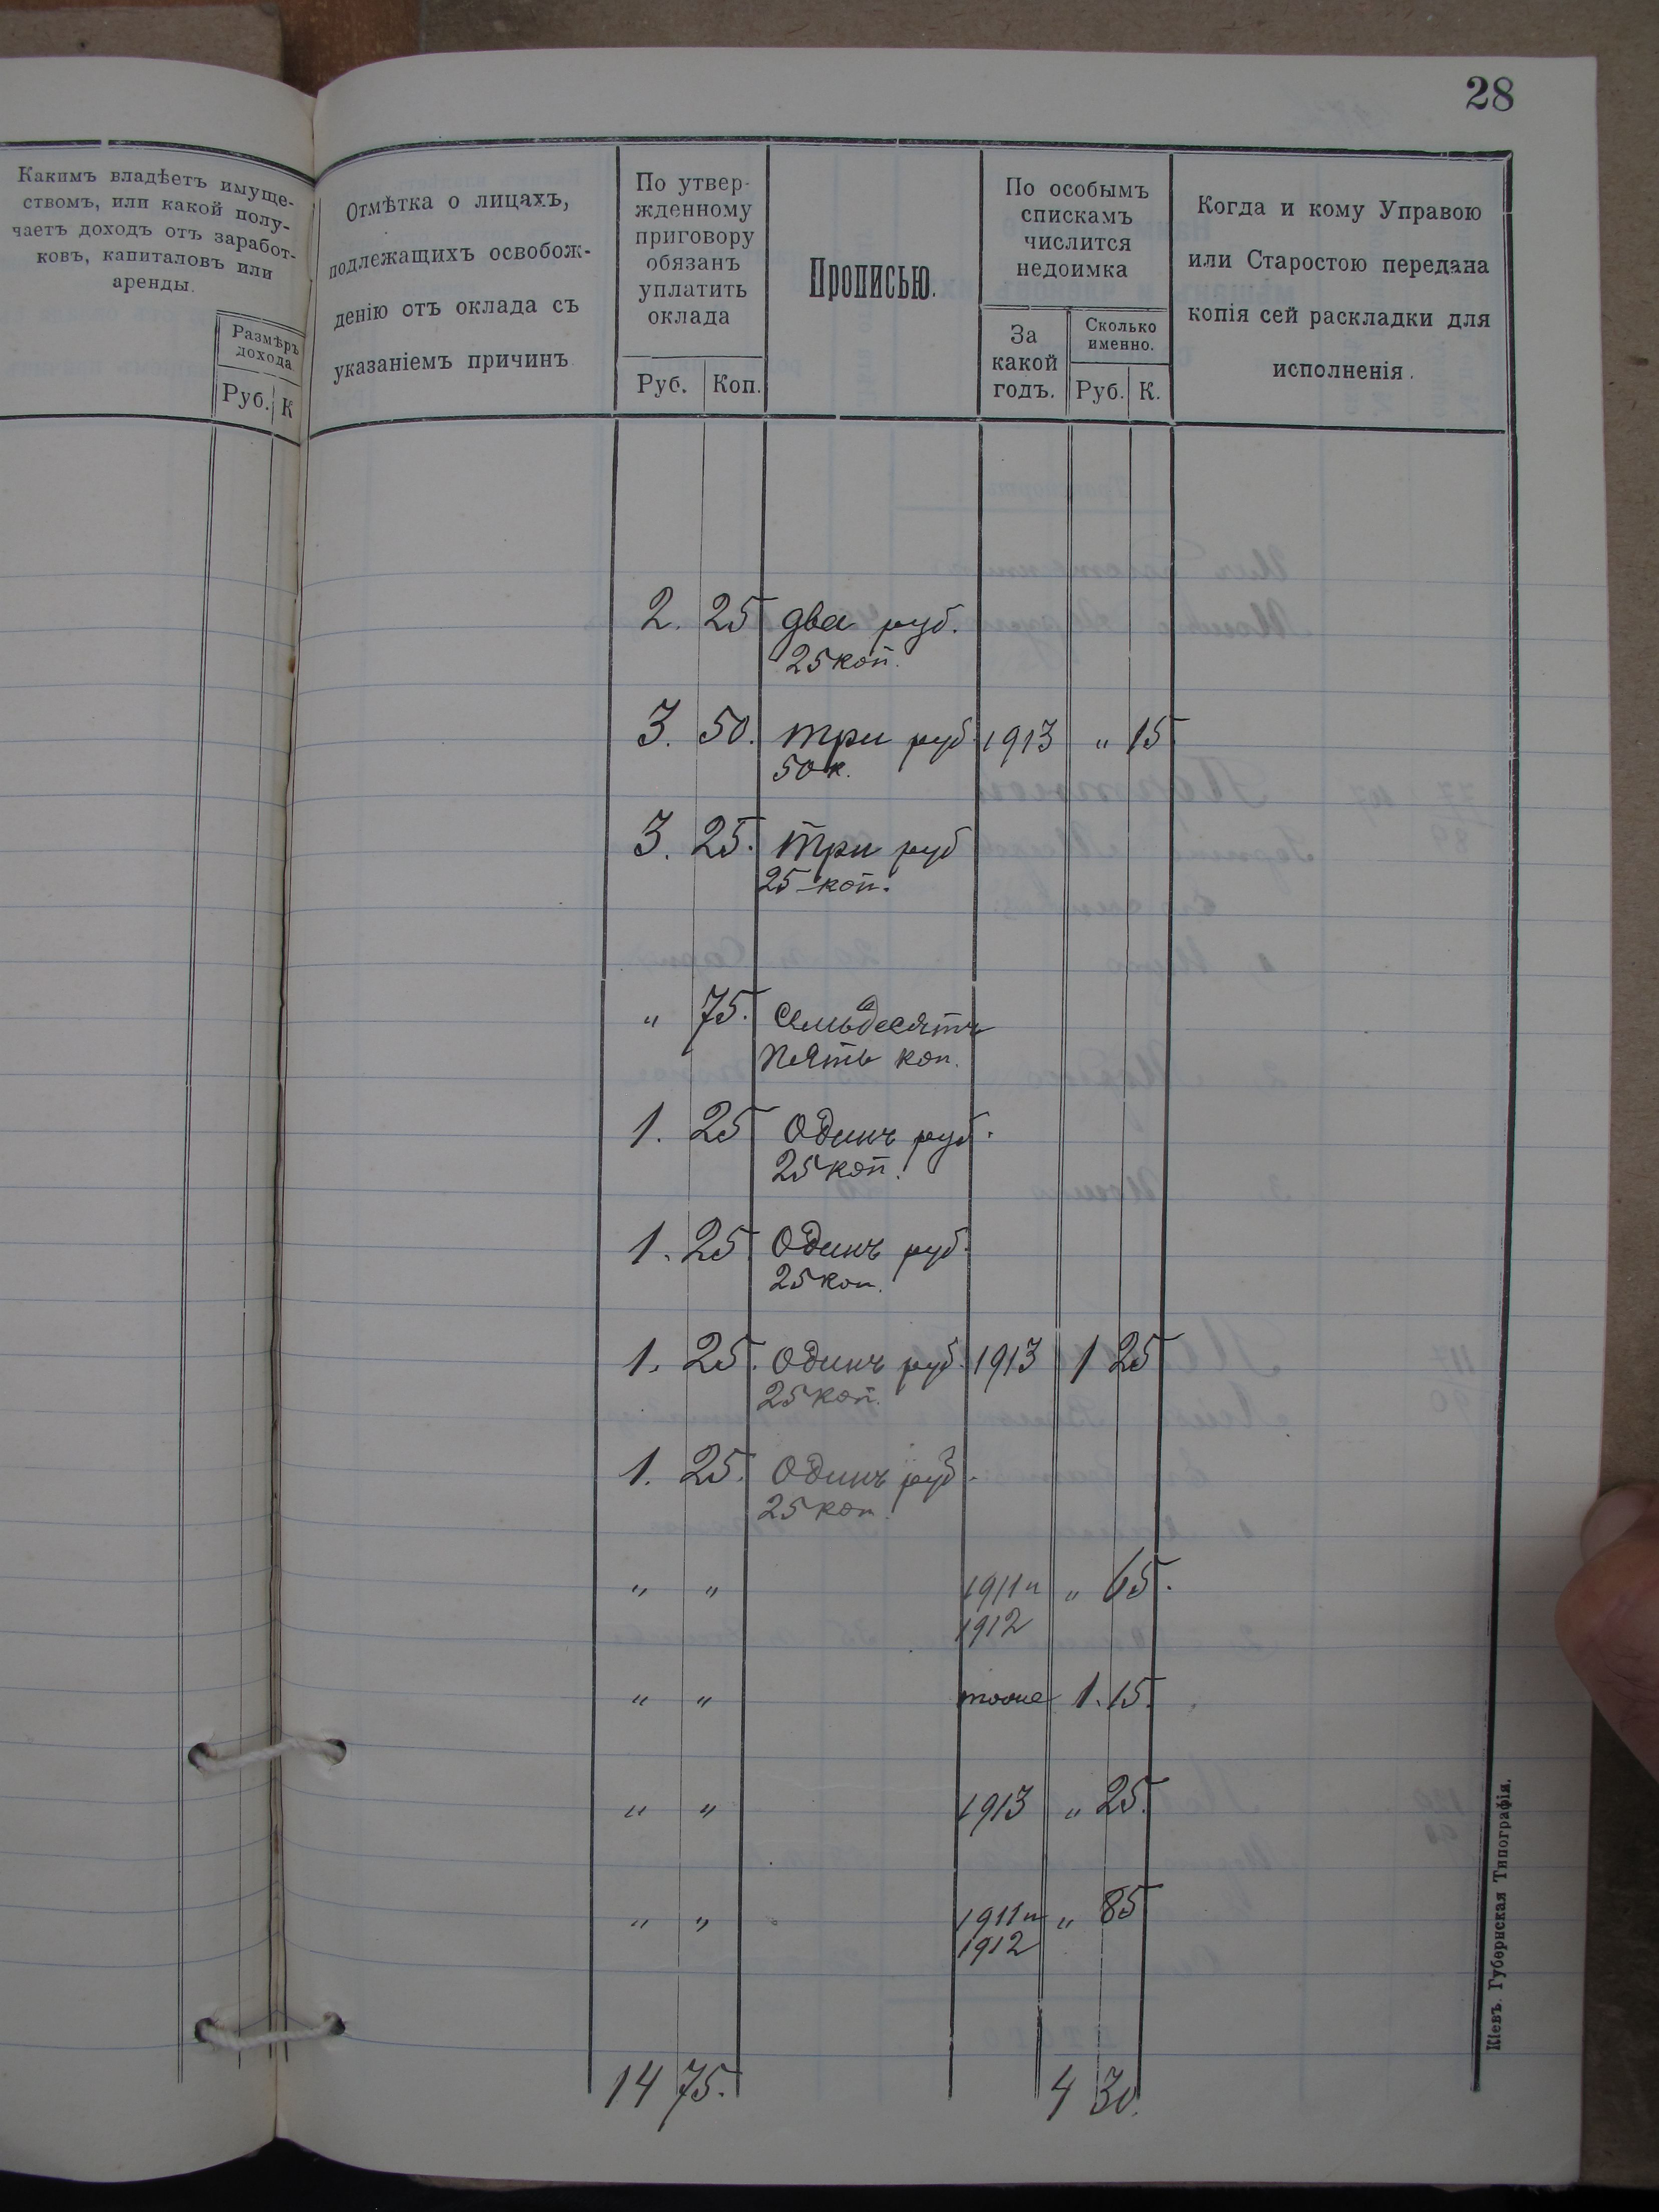 28
Какимъ владѣетъ имуще-
ствомъ, или какой полу-
чаетъ доходъ отъ заработ-
ковъ, капиталовъ или
аренды.
Размѣръ
дохода
Руб. К
Отмѣтка о лицахъ,
подлежащихъ освобож-
денію отъ оклада съ
указаніемъ причинъ
По утвер-
жденному
приговору
обязанъ
уплатить
оклада
Руб. Коп.
Прописью.
По особымъ
спискамъ
числится
недоимка
За
какой
годъ.
Сколько
именно.
Руб. К.
Когда и кому Управою
или Старостою передана
копія сей раскладки для
исполненія.
2. 25 два руб.
25 коп.
3. 50. три руб. 1913 " 15
50 к.
3. 25. три руб
25 коп.
" 75. семьдесять
пять коп.
1. 25 Одинъ руб.
25 коп.
1. 25 Одинъ руб.
25 коп.
1. 25. Одинъ руб. 1913 1 25
25 коп.
1. 25. Одинъ руб.
25 коп.
" " 1911 и " 65.
1912
" " тоже 1. 15.
" " 1913 " 25.
" " 1911 и " 85
1912
14 75. 4 30.
Кіевъ. Губернская Типографія.